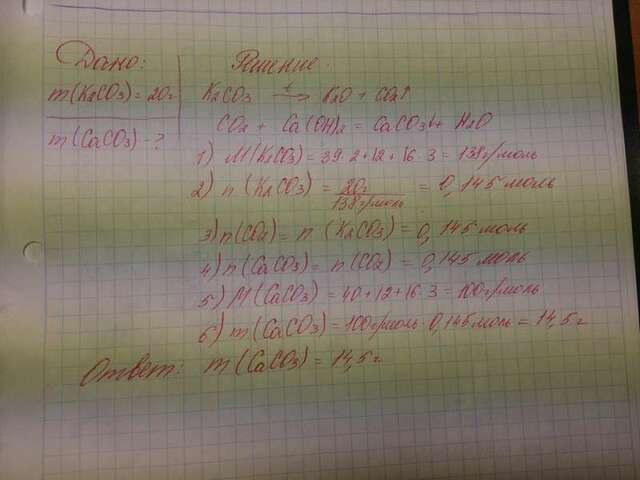 Дано:
m(K2CO3) = 20г
m(CaCO3) - ?
Решение.
K2CO3 t→ K2O + CO2↑
CO2 + Ca(OH)2 = CaCO3↓ + H2O
1) M(K2CO3) = 39·2+12+16·3 = 138г/моль
2) n(K2CO3) = 20г / 138г/моль = 0,145 моль
3) n(CO2) = n(K2CO3) = 0,145 моль
4) n(CaCO3) = n(CO2) = 0,145 моль
5) M(CaCO3) = 40+12+16·3 = 100г/моль
6) m(CaCO3) = 100г/моль · 0,145 моль = 14,5г
Ответ: m(CaCO3) = 14,5г